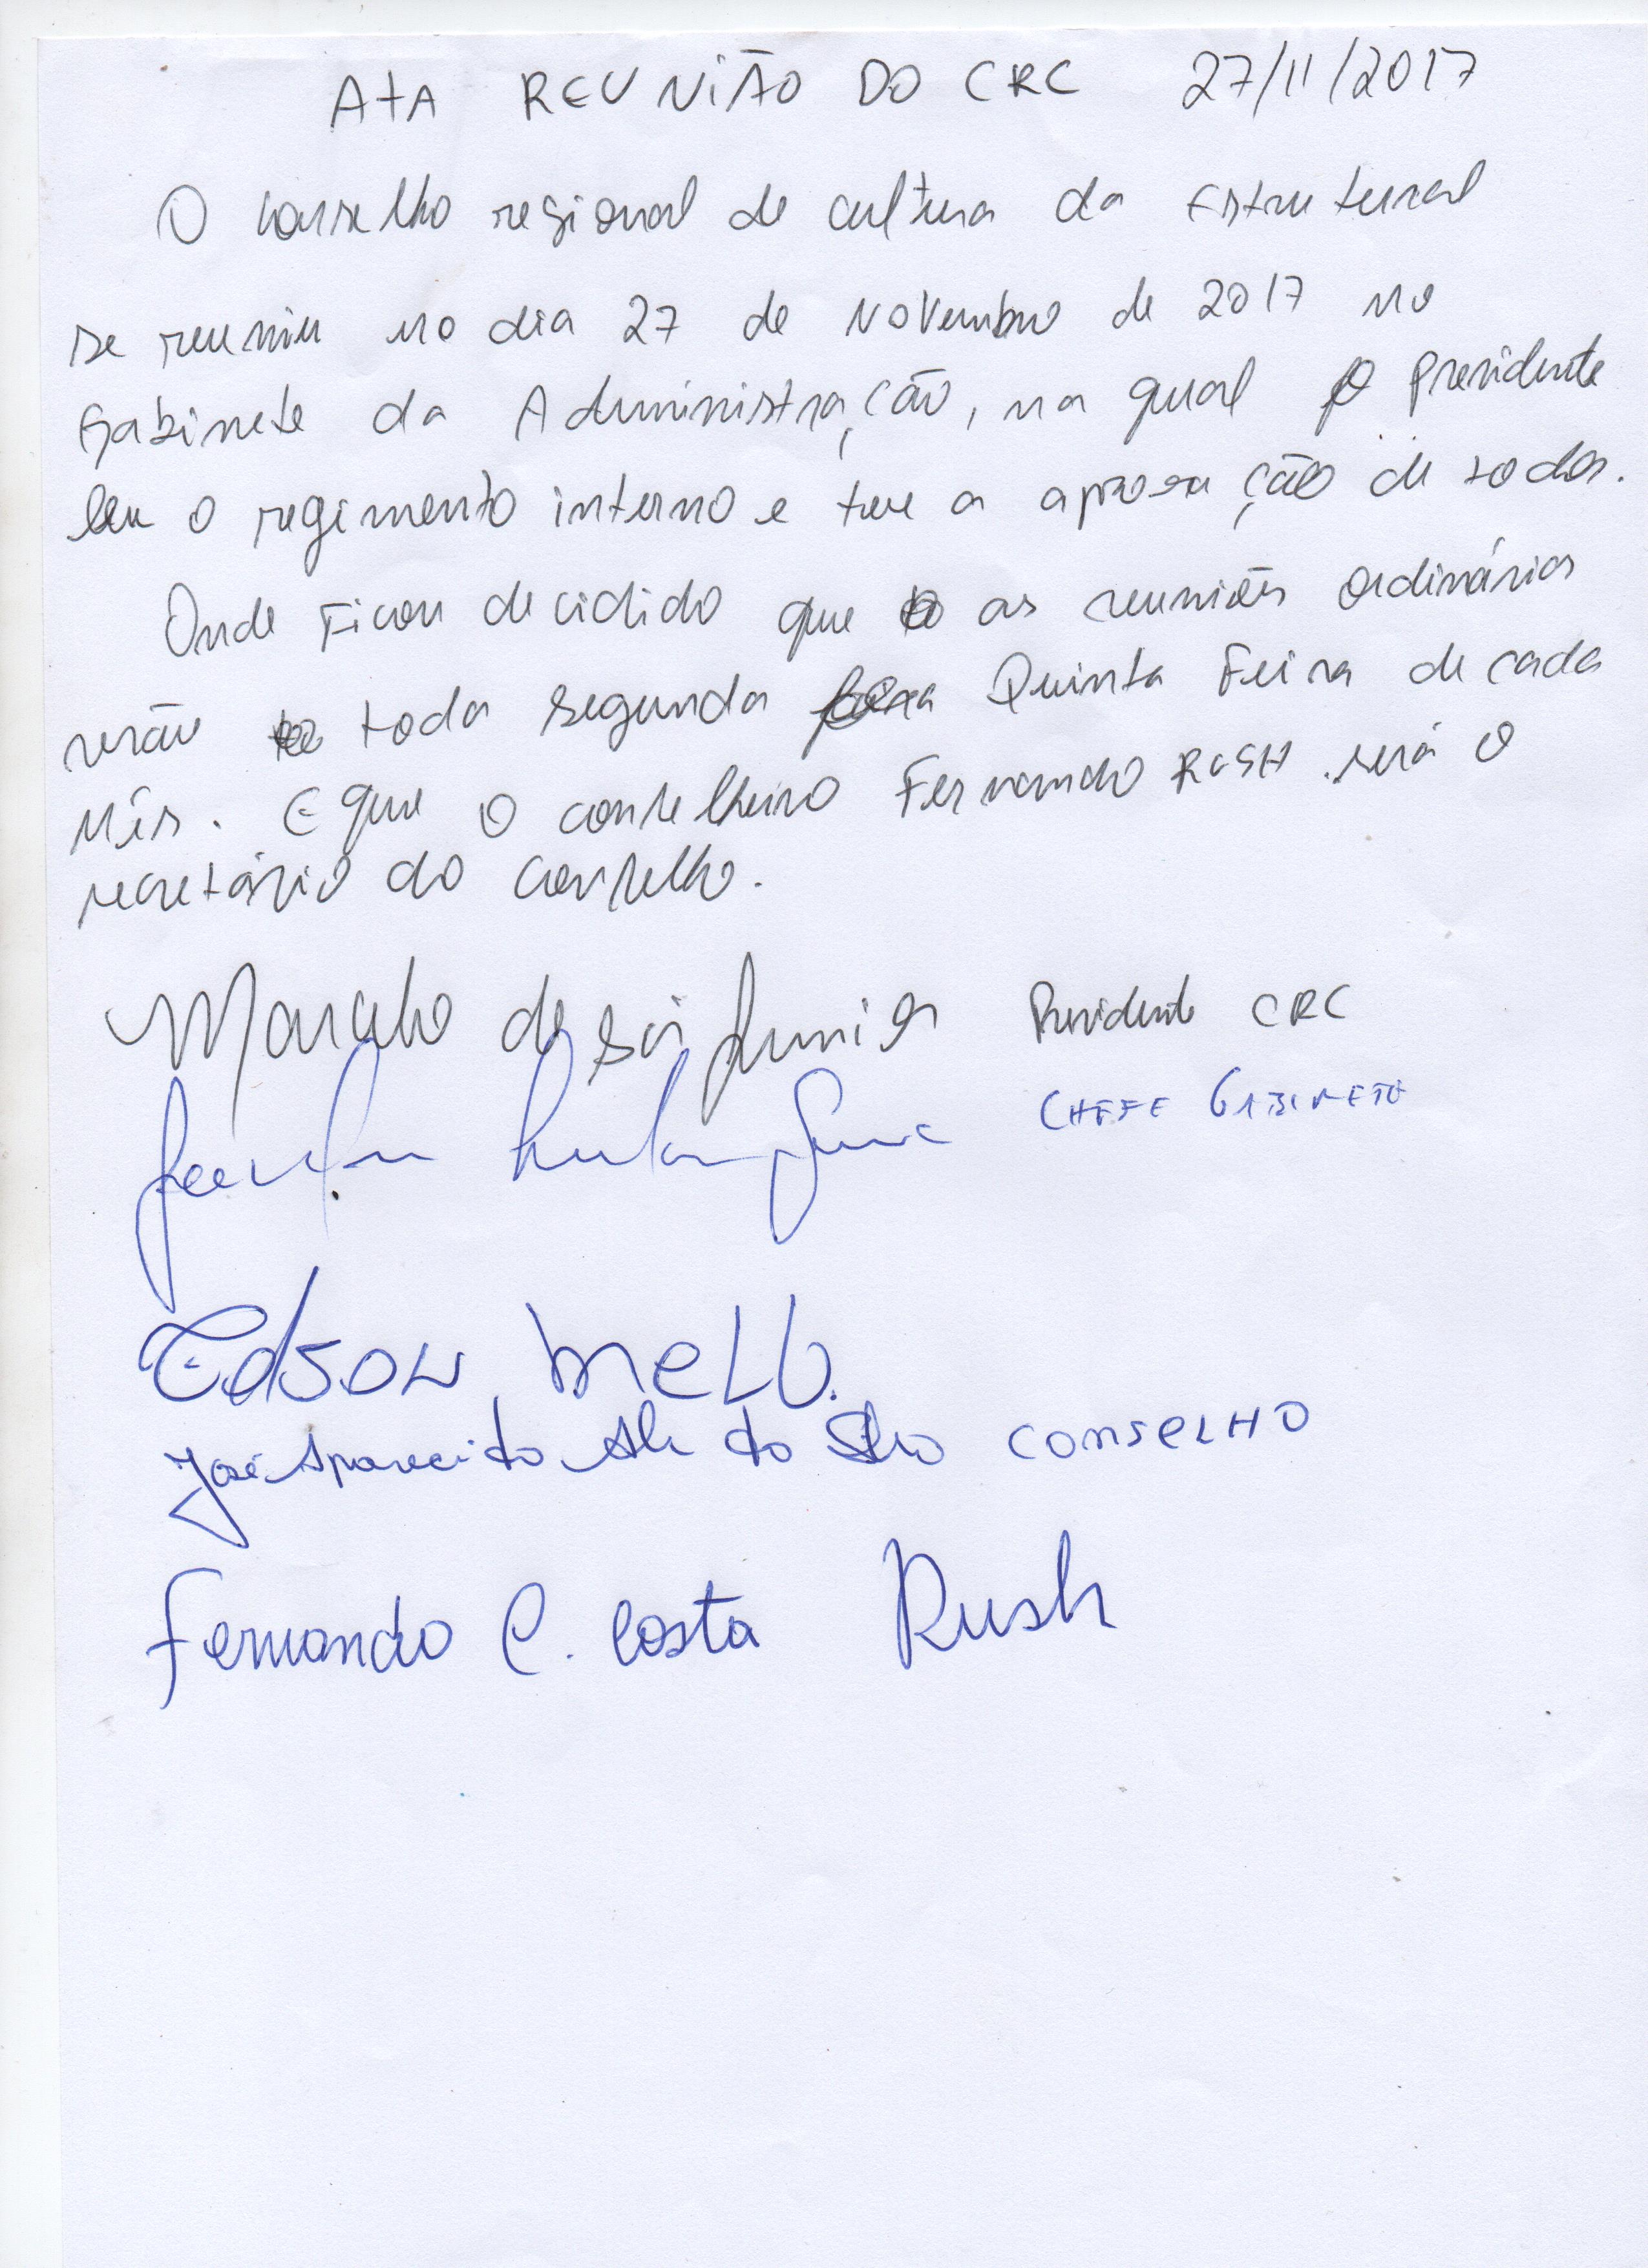 ATA REUNIÃO DO CRC 27/11/2017
O conselho regional de cultura da Estrutural
se reuniu no dia 27 de Novembro de 2017 no
Gabinete da Administração, na qual o Presidente
leu o regimento interno e teve a aprovação de todos.
Onde Ficou decidido que as reuniões ordinárias
serão toda segunda Quinta Feira de cada
Mês. E que o conselheiro Fernando RUSH será o
secretário do Conselho.
Marcelo de Junior Presidente CRC
CHEFE GABINETE
Edson Mello.
José Aparecido do CONSELHO
Fernando C. Costa Rush